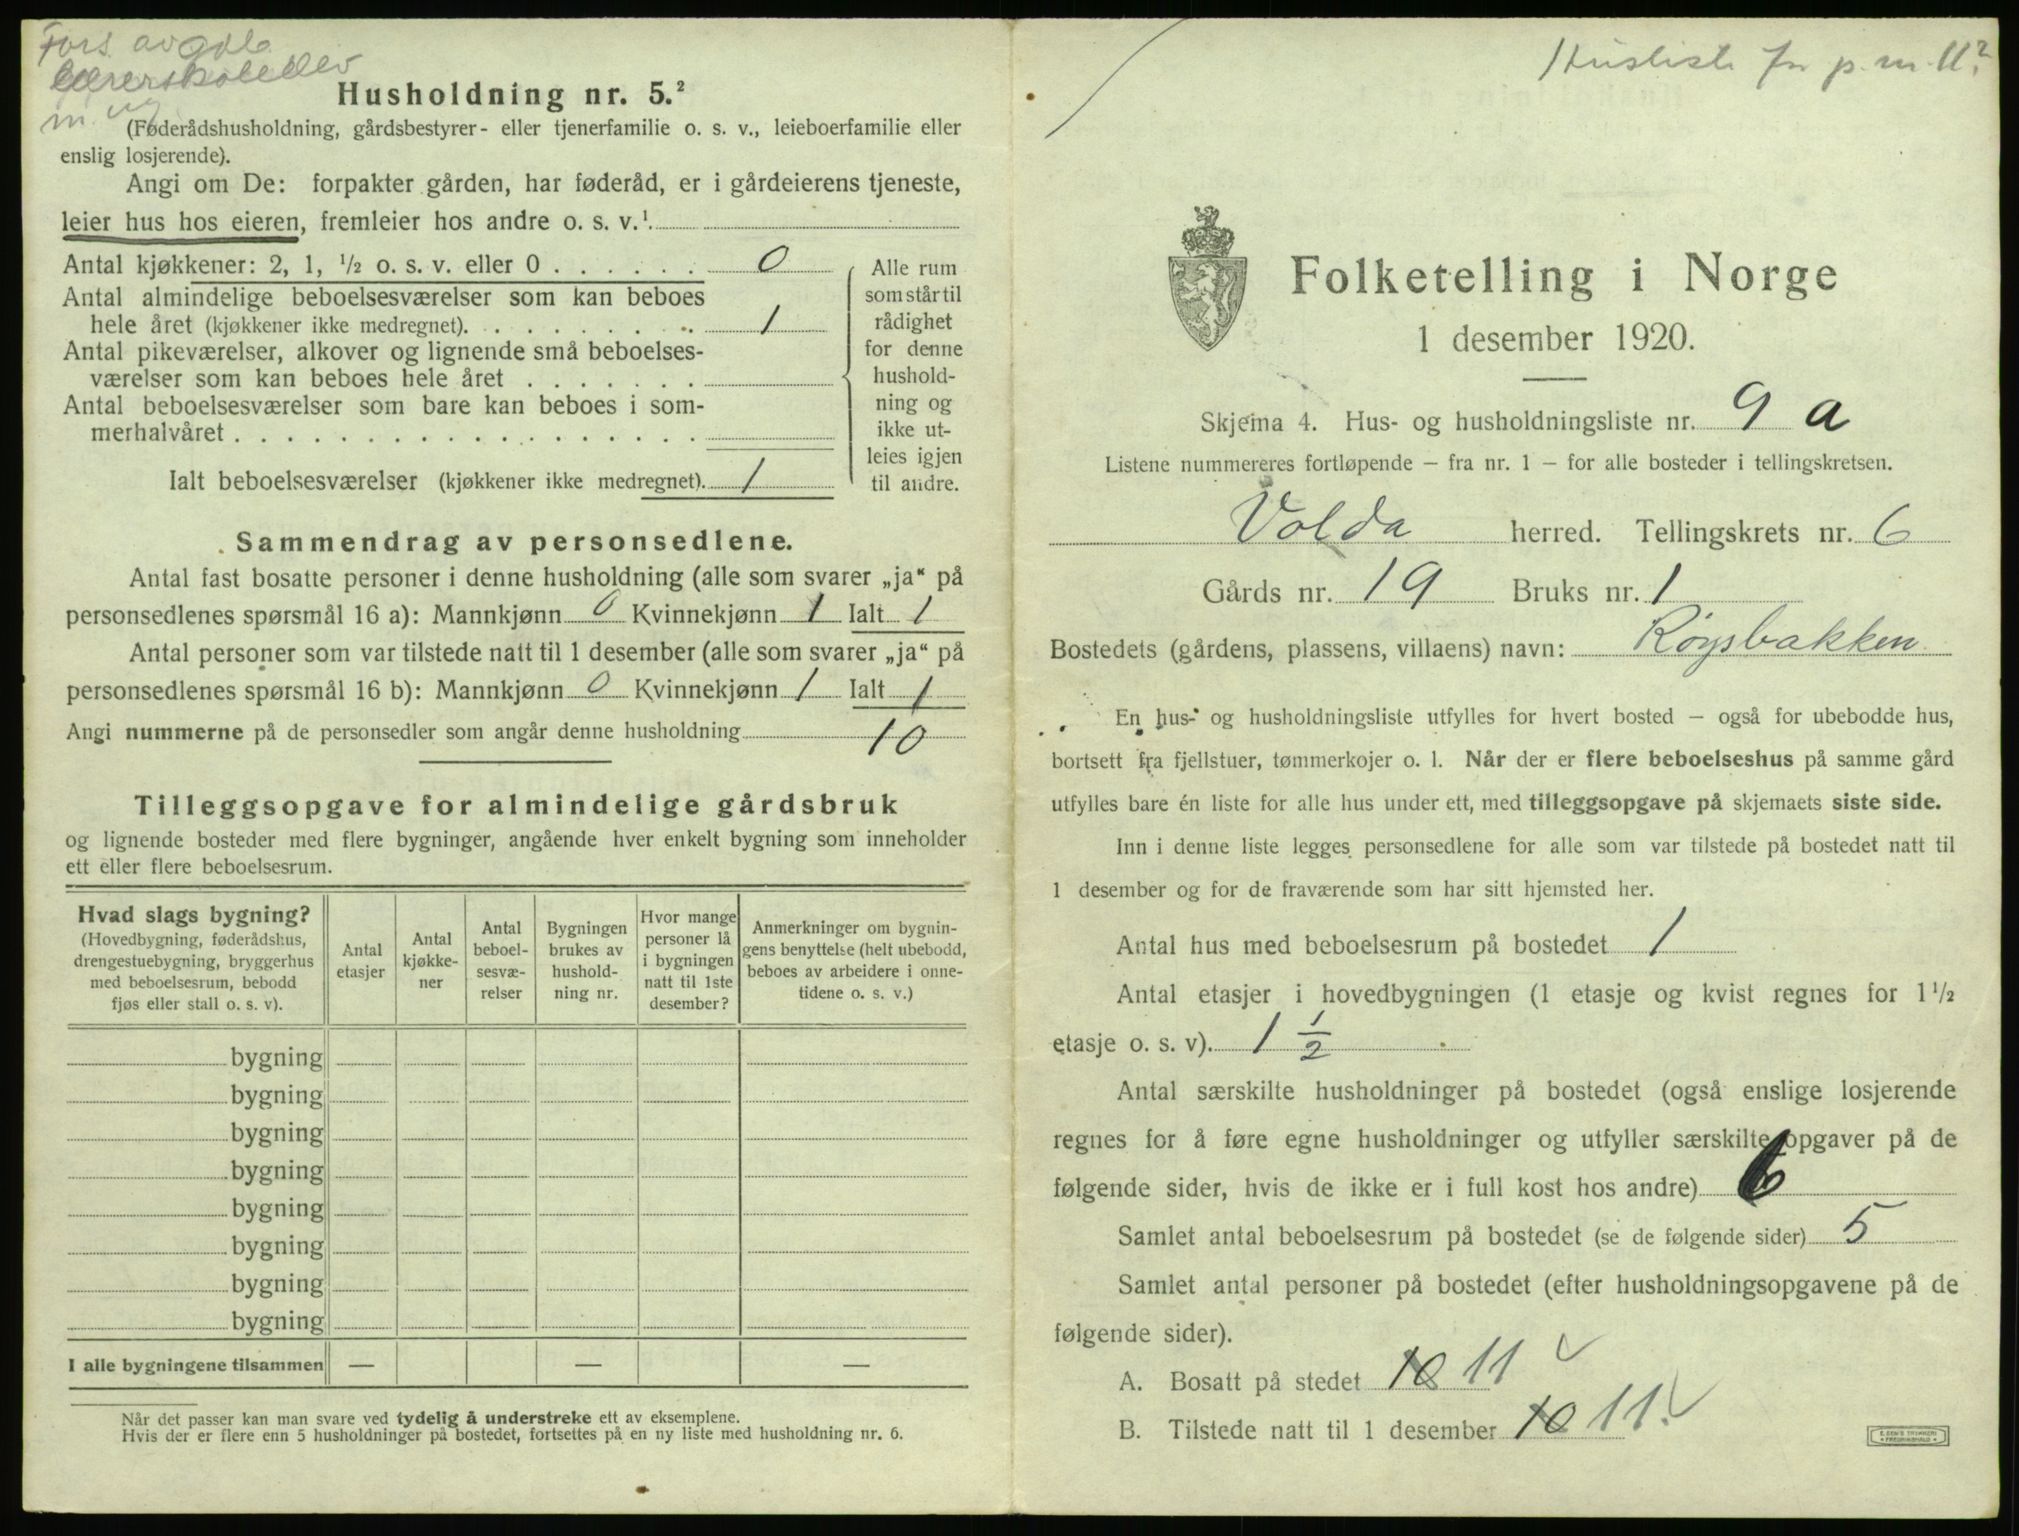 Fors. av gdb.
lærerskoleelev
m. ug.
Husholdning nr. 5.²
(Føderådshusholdning, gårdsbestyrer- eller tjenerfamilie o. s. v., leieboerfamilie eller
enslig losjerende).
Angi om De: forpakter gården, har føderåd, er i gårdeierens tjeneste,
leier hus hos eieren, fremleier hos andre o. s. v.¹
Antal kjøkkener: 2, 1, ½ o. s. v. eller 0 . . . . . . 0
Antal almindelige beboelsesværelser som kan beboes
hele året (kjøkkener ikke medregnet). . . . . . . . . 1
Antal pikeværelser, alkover og lignende små beboelses-
værelser som kan beboes hele året . . . . . . .
Antal beboelsesværelser som bare kan beboes i som-
merhalvåret . . . . . . . . . . . . . . . . . .
Ialt beboelsesværelser (kjøkkener ikke medregnet). 1
Alle rum
som står til
rådighet
for denne
hushold-
ning og
ikke ut-
leies igjen
til andre.
Sammendrag av personsedlene.
Antal fast bosatte personer i denne husholdning (alle som svarer „ja“ på
personsedlenes spørsmål 16 a): Mannkjønn 0 Kvinnekjønn 1 Ialt 1
Antal personer som var tilstede natt til 1 desember (alle som svarer „ja“ på
personsedlenes spørsmål 16 b): Mannkjønn 0 Kvinnekjønn 1 Ialt 1
Angi nummerne på de personsedler som angår denne husholdning 10
Tilleggsopgave for almindelige gårdsbruk
og lignende bosteder med flere bygninger, angående hver enkelt bygning som inneholder
ett eller flere beboelsesrum.
Hvad slags bygning?
(Hovedbygning, føderådshus,
drengestuebygning, bryggerhus
med beboelsesrum, bebodd
fjøs eller stall o. s. v).
Antal
etasjer
Antal
kjøkke-
ner
Antal
beboel-
sesvæ-
relser
Bygningen
brukes av
hushold-
ning nr.
Hvor mange
personer lå
i bygningen
natt til 1ste
desember?
Anmerkninger om bygnin-
gens benyttelse (helt ubebodd,
beboes av arbeidere i onne-
tidene o. s. v.)
bygning
bygning
bygning
bygning
bygning
bygning
bygning
bygning
I alle bygningene tilsammen — — —
Når det passer kan man svare ved tydelig å understreke ett av eksemplene.
Hvis der er flere enn 5 husholdninger på bostedet, fortsettes på en ny liste med husholdning nr. 6.
Husliste for p. m. 11?
Folketelling i Norge
1 desember 1920.
Skjema 4. Hus- og husholdningsliste nr. 9 a
Listene nummereres fortløpende — fra nr. 1 — for alle bosteder i tellingskretsen.
Volda herred. Tellingskrets nr. 6
Gårds nr. 19 Bruks nr. 1
Bostedets (gårdens, plassens, villaens) navn: Röysbakken
En hus- og husholdningsliste utfylles for hvert bosted — også for ubebodde hus,
bortsett fra fjellstuer, tømmerkojer o. l. Når der er flere beboelseshus på samme gård
utfylles bare én liste for alle hus under ett, med tilleggsopgave på skjemaets siste side.
Inn i denne liste legges personsedlene for alle som var tilstede på bostedet natt til
1 desember og for de fraværende som har sitt hjemsted her.
Antal hus med beboelsesrum på bostedet 1
Antal etasjer i hovedbygningen (1 etasje og kvist regnes for 1½
etasje o. s. v). 1 ½
Antal særskilte husholdninger på bostedet (også enslige losjerende
regnes for å føre egne husholdninger og utfyller særskilte opgaver på de
følgende sider, hvis de ikke er i full kost hos andre) 6
Samlet antal beboelsesrum på bostedet (se de følgende sider) 5
Samlet antal personer på bostedet (efter husholdningsopgavene på de
følgende sider).
A. Bosatt på stedet 10 11 ✓
B. Tilstede natt til 1 desember 10 11. ✓
E. SEM'S TRYKKERI
FREDRIKSHALD